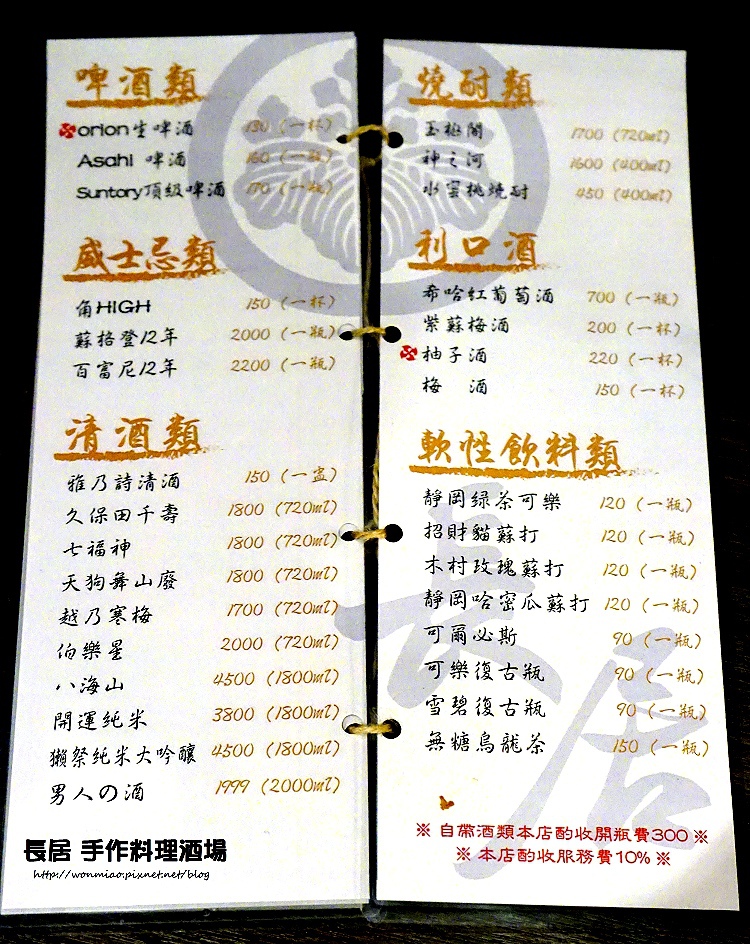 啤酒類
orion生啤酒 130 (一杯)
Asahi 啤酒 160 (一瓶)
Suntory頂級啤酒 170 (一瓶)
威士忌類
角HIGH 150 (一杯)
蘇格登12年 2000 (一瓶)
百富尼12年 2200 (一瓶)
清酒類
雅乃詩清酒 150 (一盅)
久保田千壽 1800 (720ml)
七福神 1800 (720ml)
天狗舞山廢 1800 (720ml)
越乃寒梅 1700 (720ml)
伯樂星 2000 (720ml)
八海山 4500 (1800ml)
開運純米 3800 (1800ml)
獺祭純米大吟釀 4500 (1800ml)
男人の酒 1999 (2000ml)
長居 手作料理酒場
http://wonmiao.pixnet.net/blog
燒酎類
玉極閣 1700 (720ml)
神之河 1600 (400ml)
水蜜桃燒酎 450 (400ml)
利口酒
希哈紅葡萄酒 700 (一瓶)
紫蘇梅酒 200 (一杯)
柚子酒 220 (一杯)
梅 酒 150 (一杯)
軟性飲料類
靜岡綠茶可樂 120 (一瓶)
招財貓蘇打 120 (一瓶)
木村玫瑰蘇打 120 (一瓶)
靜岡哈密瓜蘇打 120 (一瓶)
可爾必斯 90 (一瓶)
可樂復古瓶 90 (一瓶)
雪碧復古瓶 90 (一瓶)
無糖烏龍茶 150 (一瓶)
長居
※ 自帶酒類本店酌收開瓶費300 ※
※ 本店酌收服務費10% ※